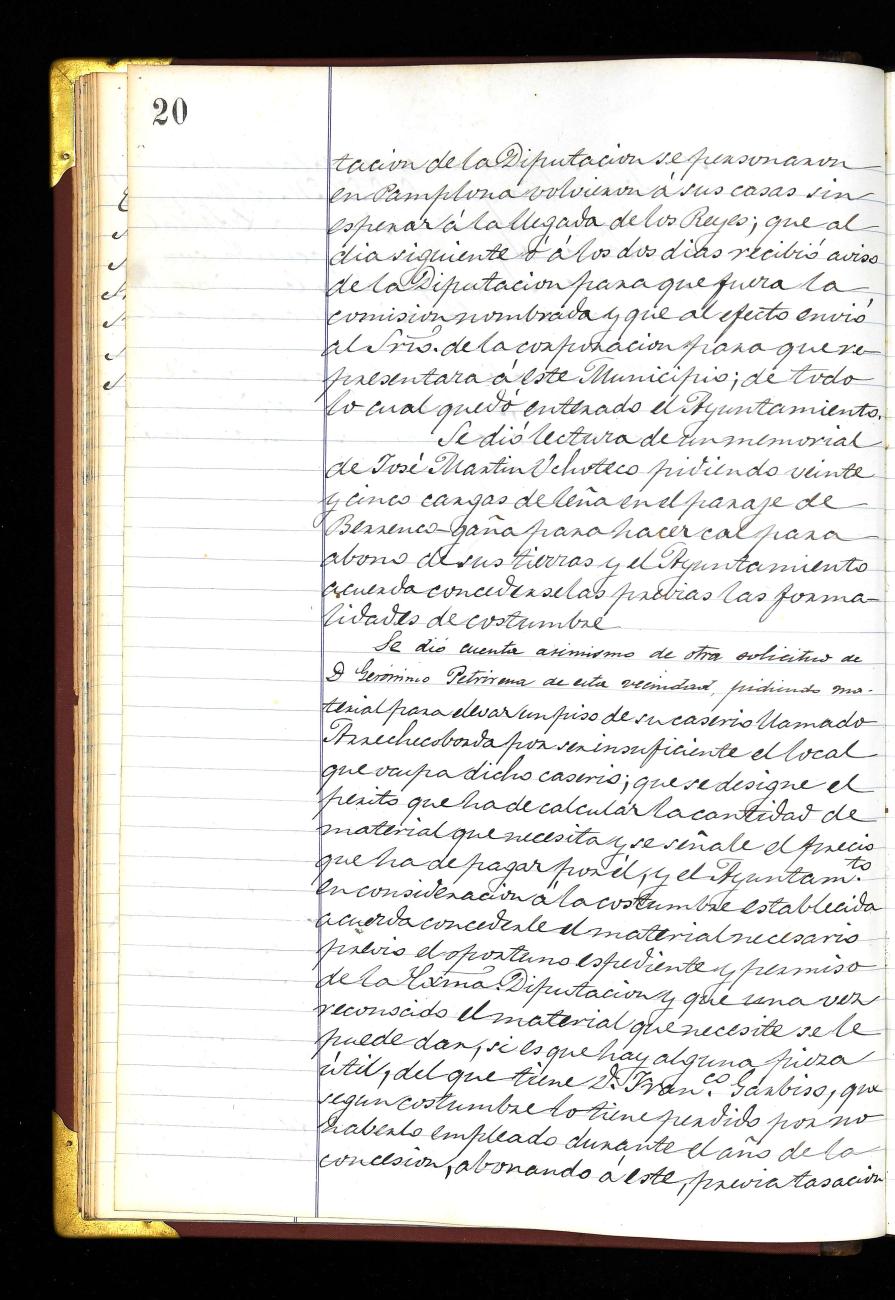 20
tacion de la Diputacion se personaron
en Pamplona volvieron á sus casas sin
esperar á la llegada de los Reyes; que al
dia siguiente ó á los dos dias recibió aviso
de la Diputacion para que fuera la
comision nombrada y que al efecto envió
al Srio. de la corporacion para que re-
presentara á este Municipio; de todo
lo cual quedó enterado el Ayuntamiento.
Se dió lectura de un memorial
de José Martin Uchoteco pidiendo veinte
y cinco cargas de leña en el paraje de
Berrenco-gaña para hacer cal para
abono de sus tierras y el Ayuntamiento
acuerda concederselas previas las forma-
lidades de costumbre
Se dió cuenta asimismo de otra solicitud de
D Gerónimo Petrirena de esta vecindad, pidiendo ma-
terial para elevar un piso de su caserio llamado
Arrechecoborda por ser insuficiente el local
que ocupa dicho caserio; que se designe el
perito que ha de calcular la cantidad de
material que necesita y se señale el precio
que ha de pagar por él, y el Ayuntam.to
en consideracion á la costumbre establecida
acuerda concederle el material necesario
previo el oportuno espediente y permiso
de la Exma. Diputacion y que una vez
reconocido el material que necesite se le
puede dar, si es que hay alguna pieza
útil, del que tiene D. Fran.co Garbiso, que
segun costumbre lo tiene perdido por no
haberlo empleado durante el año de la
concesion, abonando á este, previa tasacion